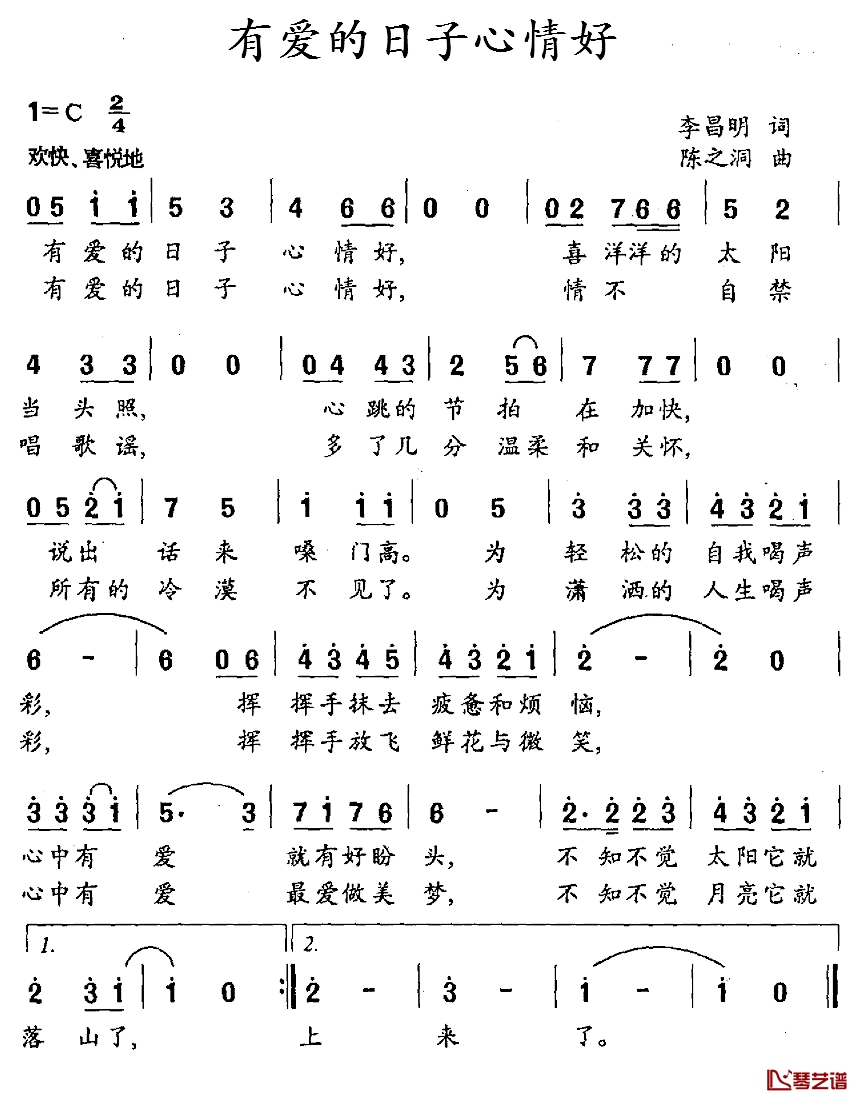 有爱的日子心情好
1=C 2/4
李昌明 词
欢快、喜悦地
陈之洞 曲
0 5 1 1 | 5 3 | 4 6 6 | 0 0 | 0 2 7 6 6 | 5 2
有爱的日子 心情好, 喜洋洋的太阳
有爱的日子 心情好, 情不 自禁
4 3 3 | 0 0 | 0 4 4 3 | 2 5 6 | 7 7 7 | 0 0 |
当头照, 心跳的节拍在加快,
唱歌谣, 多了几分温柔和关怀,
0 5 2 1 | 7 5 | 1 1 1 | 0 5 | 3 3 3 | 4 3 2 1 |
说出 话来 嗓门高。为 轻松的 自我喝声
所有的冷漠 不见了。为 潇洒的 人生喝声
6 - | 6 0 6 | 4 3 4 5 | 4 3 2 1 | 2 - | 2 0 |
彩, 挥 挥手抹去 疲惫和烦恼,
彩, 挥 挥手放飞 鲜花与微笑,
3 3 3 1 | 5· 3 | 7 1 7 6 | 6 - | 2· 2 2 3 | 4 3 2 1 |
心中有 爱 就有好盼头, 不知不觉 太阳它就
心中有 爱 最爱做美梦, 不知不觉 月亮它就
1. 2.
2 3 1 | 1 0 :| 2 - | 3 - | 1 - | 1 0 ‖
落山了, 上来了。
琴艺谱